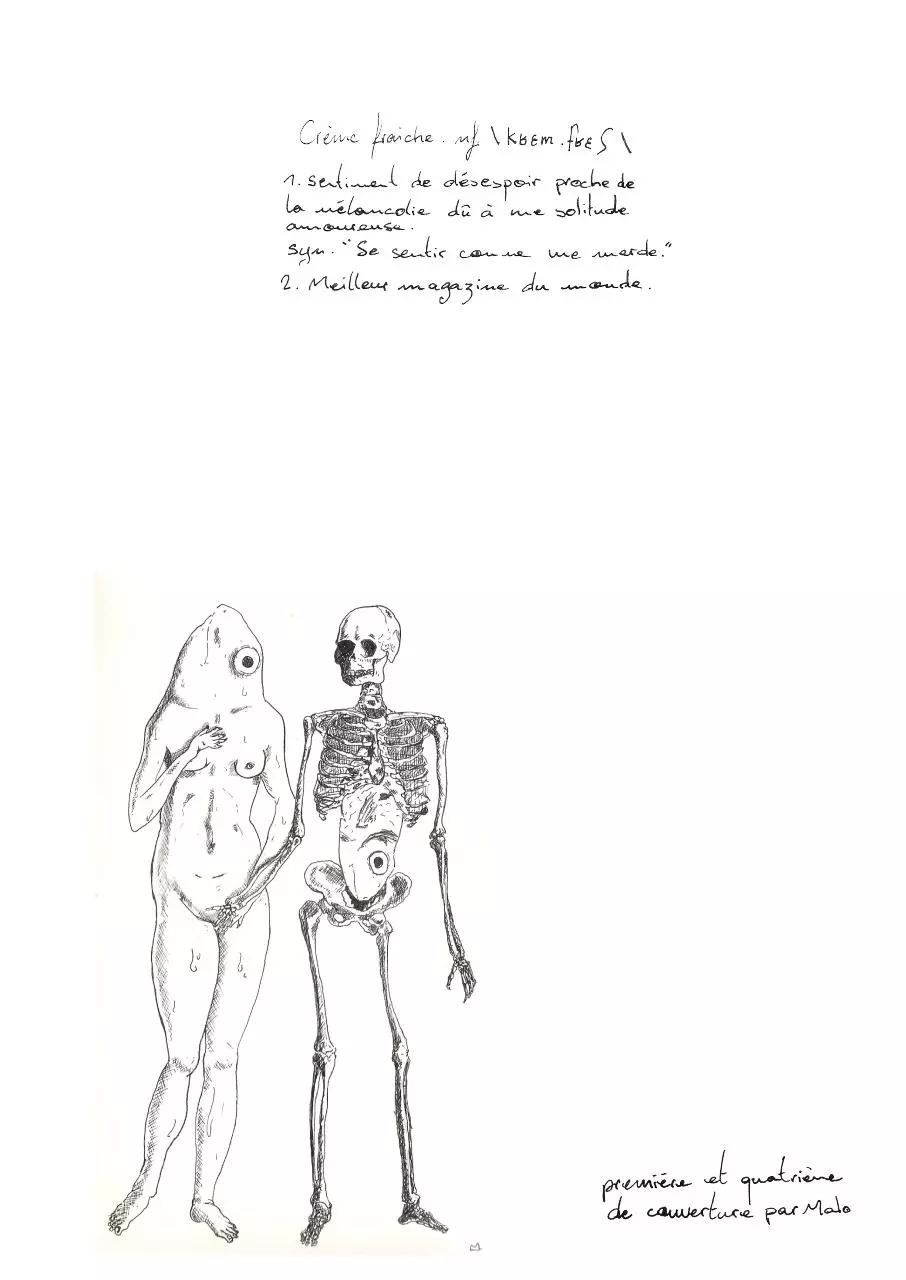 Crème fraîche. nf \ kʁɛm.fʁɛʃ \
1. Sentiment de désespoir proche de
la mélancolie dû à une solitude
amoureuse.
Syn. "Se sentir comme une merde."
2. Meilleur magazine du monde.
première et quatrième
de couverture par Malo